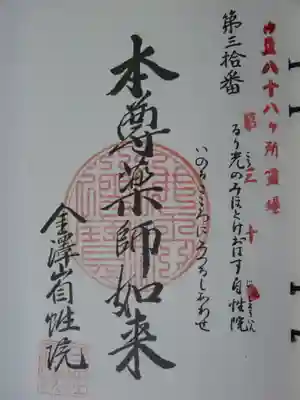 八十八ヶ所霊場
第三十
第三拾番
るり光のみほとけおはす自性院
いのるこころにみつるしあわせ
本尊薬師如来
金澤山自性院